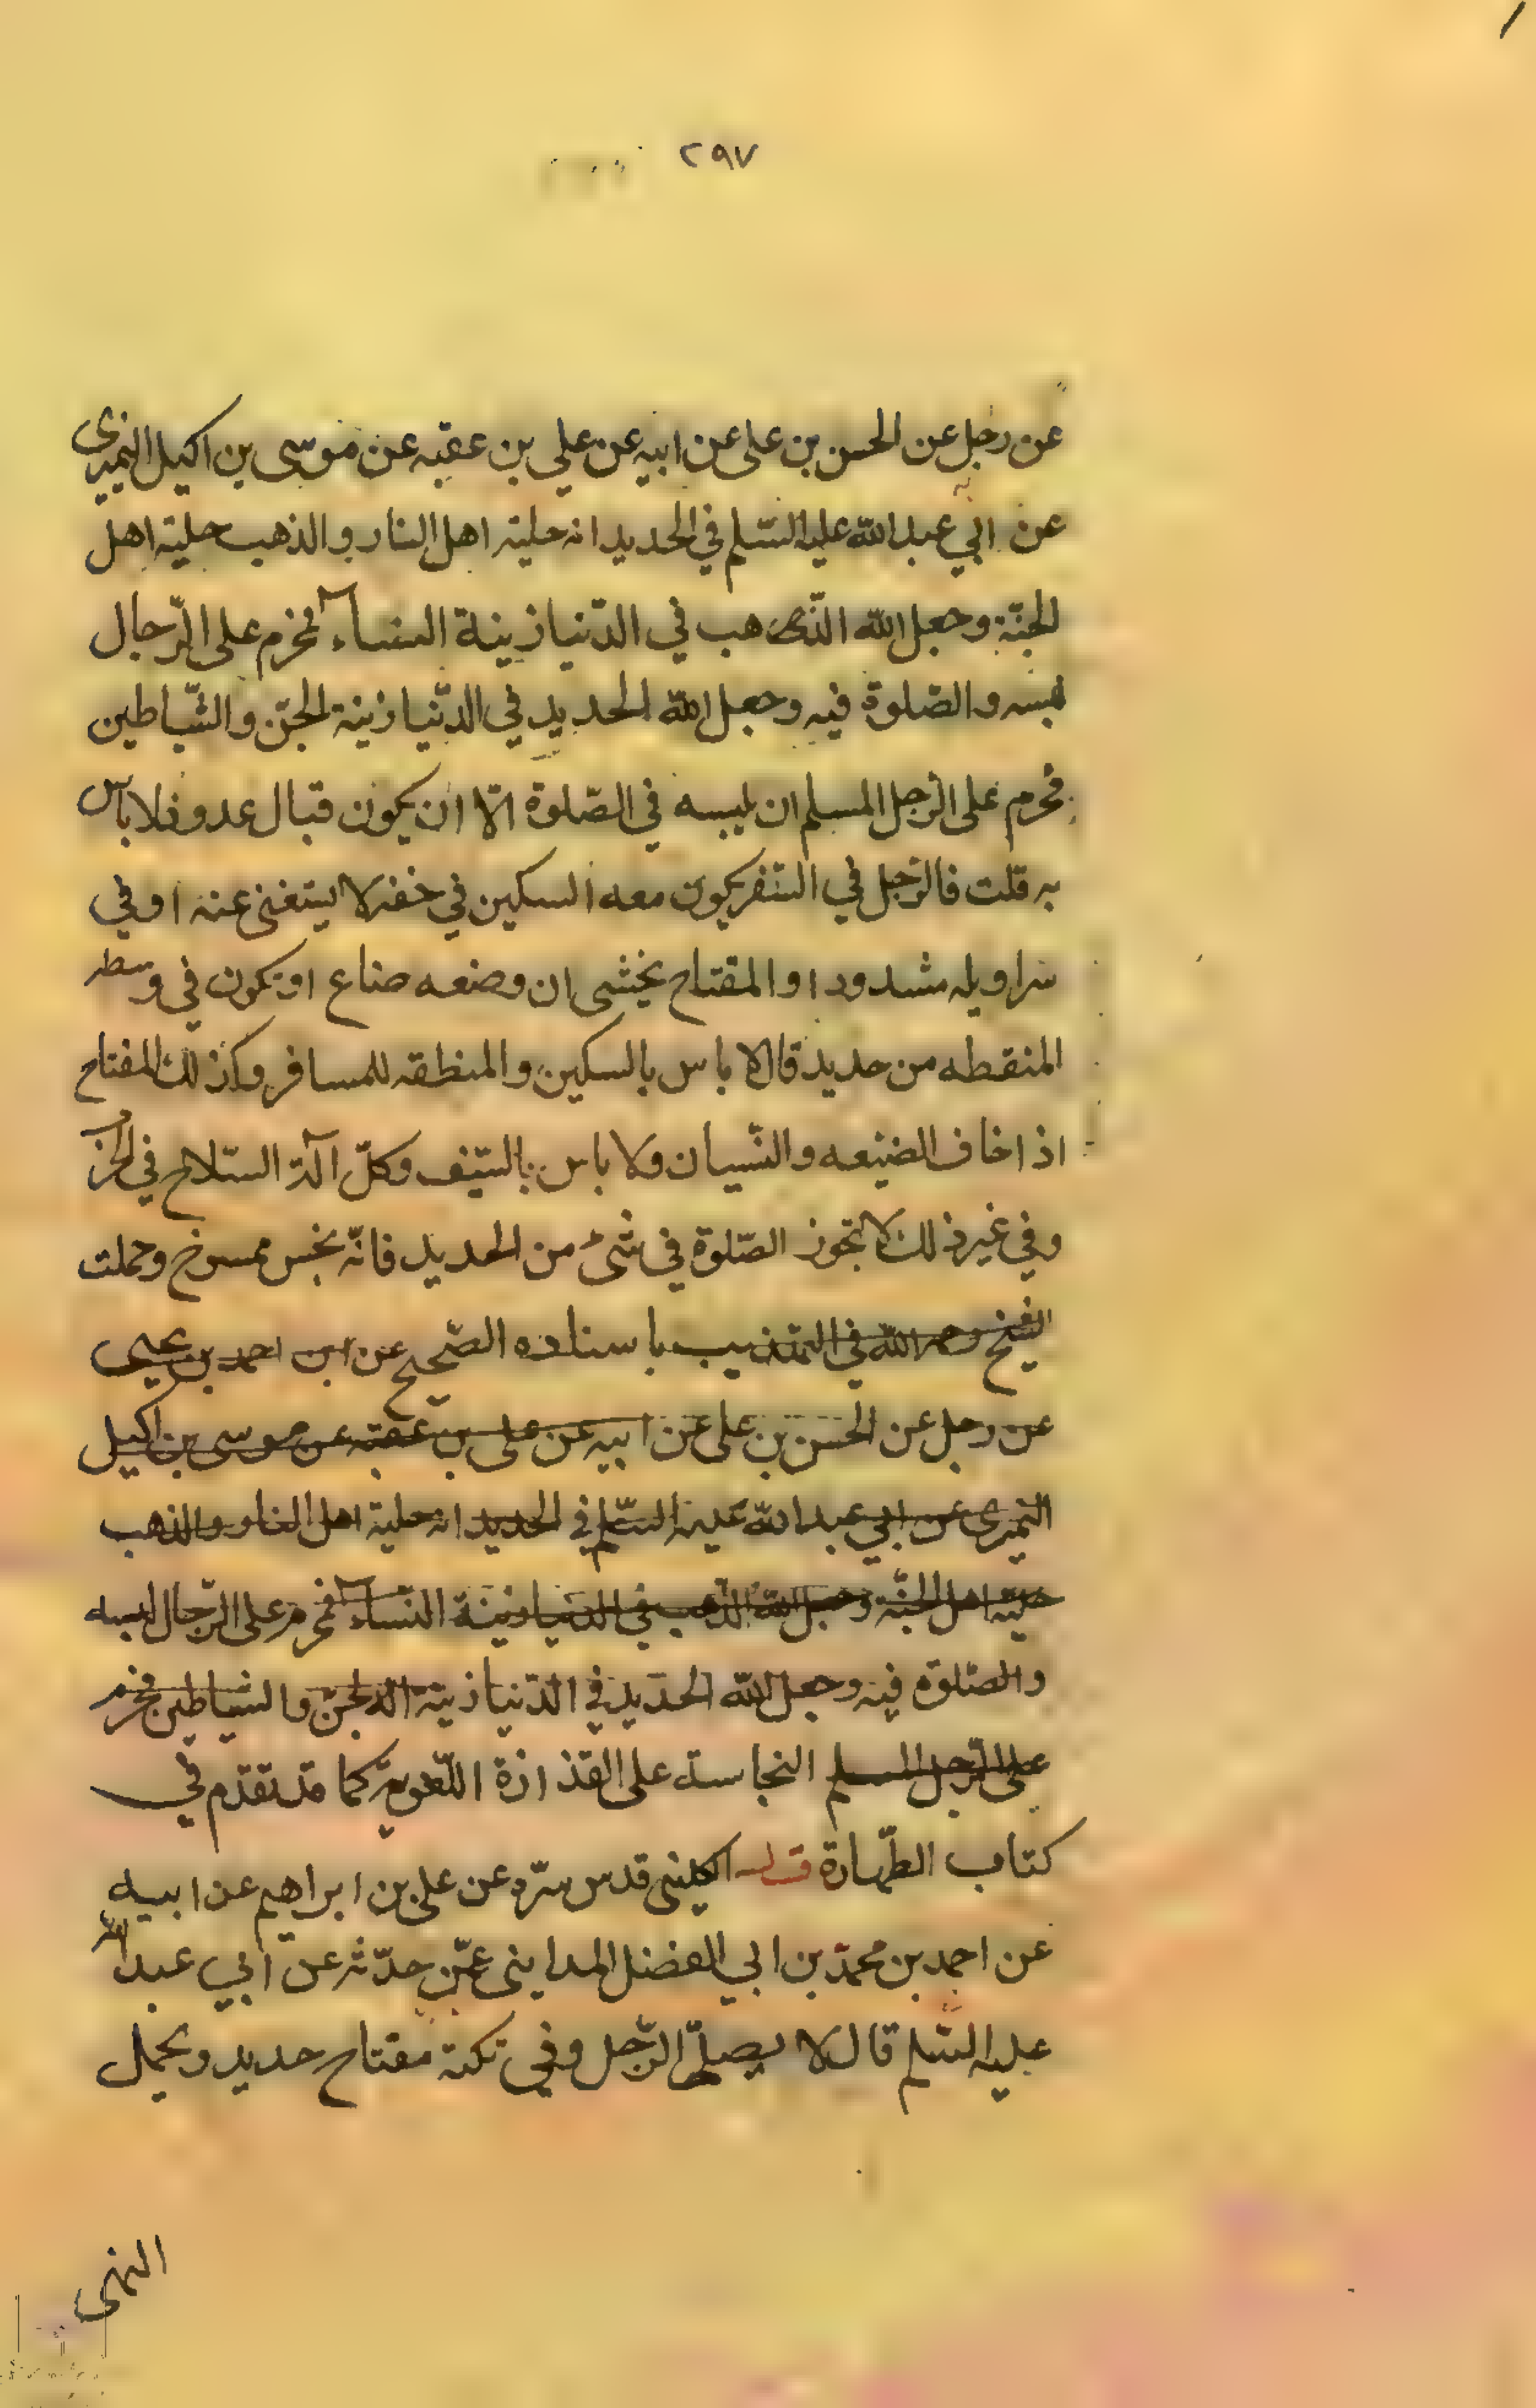 ٢٩٧
عن رجل عن الحسن بن علی عن ابیه عن علي بن عقبه عن موسی بن اکیل النمیری
عن ابي عبد الله علیه السّلم في الحدید انه حلیته اهل النار و الذهب حلیة اهل
الجنّة وجعل الله الذهب في الدّنیا زینة النساء فحرم علی الرّجال
لبسه والصّلوة فیه وجعل الله الحدید في الدّنیا زینة الجنّ والشّیاطین
فحرم علی الرّجل المسلم ان یلبسه في الصّلوة الّا ان یکون قبال عدو فلا باس
به قلت فالرّجل في السّفر یکون معه السکین في خفه لا یستغنی عنه او في
سراویله مشدود او المفتاح یخشی ان وضعه ضاع او یکون في وسطه
المنقطه من حدید قال لا باس بالسکین والمنطقه للمسافر وکذلك المفتاح
اذا خاف الضیعه والنّسیان ولا باس بالسّیف وکلّ آلة السّلاح في الحرب
وفي غیر ذلك لا تجوز الصّلوة في شیء من الحدید فانّه نجس ممسوخ وحملت
الشیخ رحمه الله في التهذیب باسناده الصّحیح عن ابن احمد بن یحیی
عن رجل عن الحسن بن علی عن ابیه عن علی بن عقبه عن موسی بن اکیل
النمیری عن ابي عبد الله علیه السّلم في الحدید انه حلیة اهل النار والذهب
حلیة اهل الجنّة وجعل الله الذّهب في الدنیا زینة النّساء فحرم علی الرّجال لبسه
والصّلوة فیه وجعل الله الحدید في الدّنیا زینة الجنّ والشیاطین فحرم
علی الرّجل المسلم النجاسة علی القذارة اللّغویة کما قد تقدّم في
کتاب الطّهارة قوله الکلینی قدس سرّه عن علی بن ابراهیم عن ابیه
عن احمد بن محمّد بن ابي الفضل المداینی عمّن حدّثه عن ابي عبد الله
علیه السّلم قال لا یصلّی الرّجل وفي تکته مفتاح حدید ویحمل
النهی